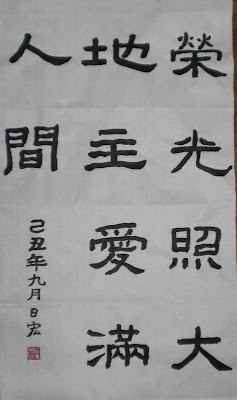 榮光照大
地主愛滿
人間
己丑年九月日宏